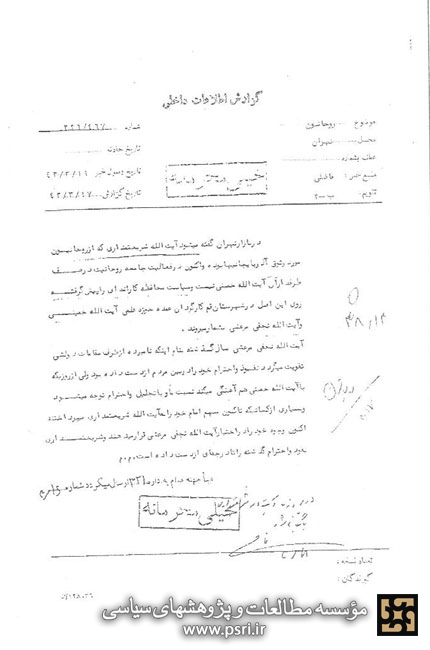 گزارش اطلاعات داخلی
موضوع روحانیون
شماره ۳۲۱/۲۶۷
محل تهران
تاریخ حادثه
منبع خبر: فاضلی
تاریخ وصول خبر ۴۳/۳/۱۶
تقویم ب-۲
تاریخ گزارش ۴۳/۳/۱۷
خیلی محرمانه
در بازار تهران گفته میشود آیت الله شریعتمداری که از روحانیون
مورد وثوق آذربایجانیها بوده و اکنون در فعالیت جامعه روحانیت در صف
طرفداران آیت الله خمینی نیست و سیاست محافظه کارانه ای را پیش گرفته
روی این اصل در شهرستان قم کارگردان عمده حوزه علمی آیت الله خمینی
و آیت الله نجفی مرعشی بشمار میروند.
آیت الله نجفی مرعشی سال گذشته بنام اینکه نامبرده از طرف مقامات دولتی
تقویت میگردد نفوذ و احترام خود را در بین مردم از دست داده بود ولی از روزیکه
با آیت الله خمینی هم آهنگی میکند نسبت باو با تجلیل و احترام توجه میشود
و بسیاری از کسانیکه تاکنون سهم امام خود را به آیت الله شریعتمداری میپرداختند
اکنون وجوه خود را در اختیار آیت الله نجفی مرعشی قرار میدهند و شریعتمداری
نفوذ و احترام گذشته را تا درجه ای از دست داده است.
خیلی محرمانه
تعداد نسخه:
گیرندگان:
مؤسسه مطالعات و پژوهشهای سیاسی
www.psri.ir